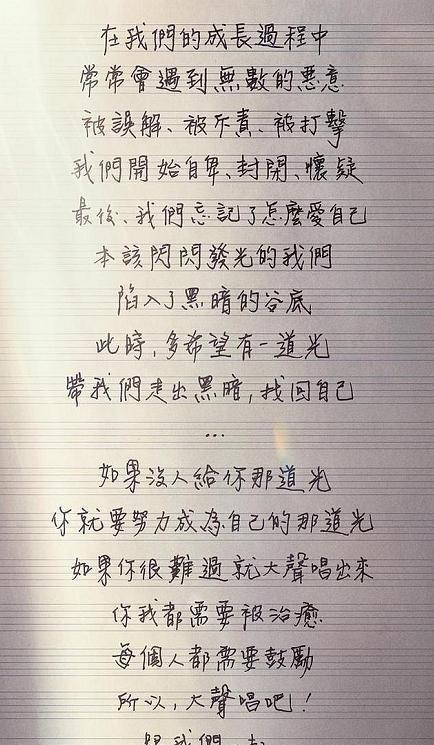 在我們的成長過程中
常常會遇到無數的惡意
被誤解、被斥責、被打擊
我們開始自卑、封閉、懷疑
最後、我們忘記了怎麼愛自己
本該閃閃發光的我們
陷入了黑暗的谷底
此時，多希望有一道光
帶我們走出黑暗，找回自己
...
如果沒人給你那道光
你就要努力成為自己的那道光
如果你很難過就大聲唱出來
你我都需要被治癒
每個人都需要鼓勵
所以，大聲唱吧！
跟我們一起